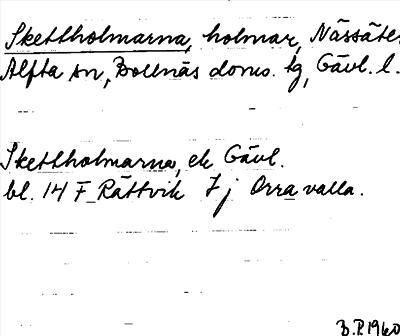 Skettholmarna, holmar, Nässäter
Alfta sn, Bollnäs doms. tg, Gävl. l.
Skettholmarna, ek Gävl.
bl. 14 F Rättvik 7 j Orravalla.
B.P. 1960